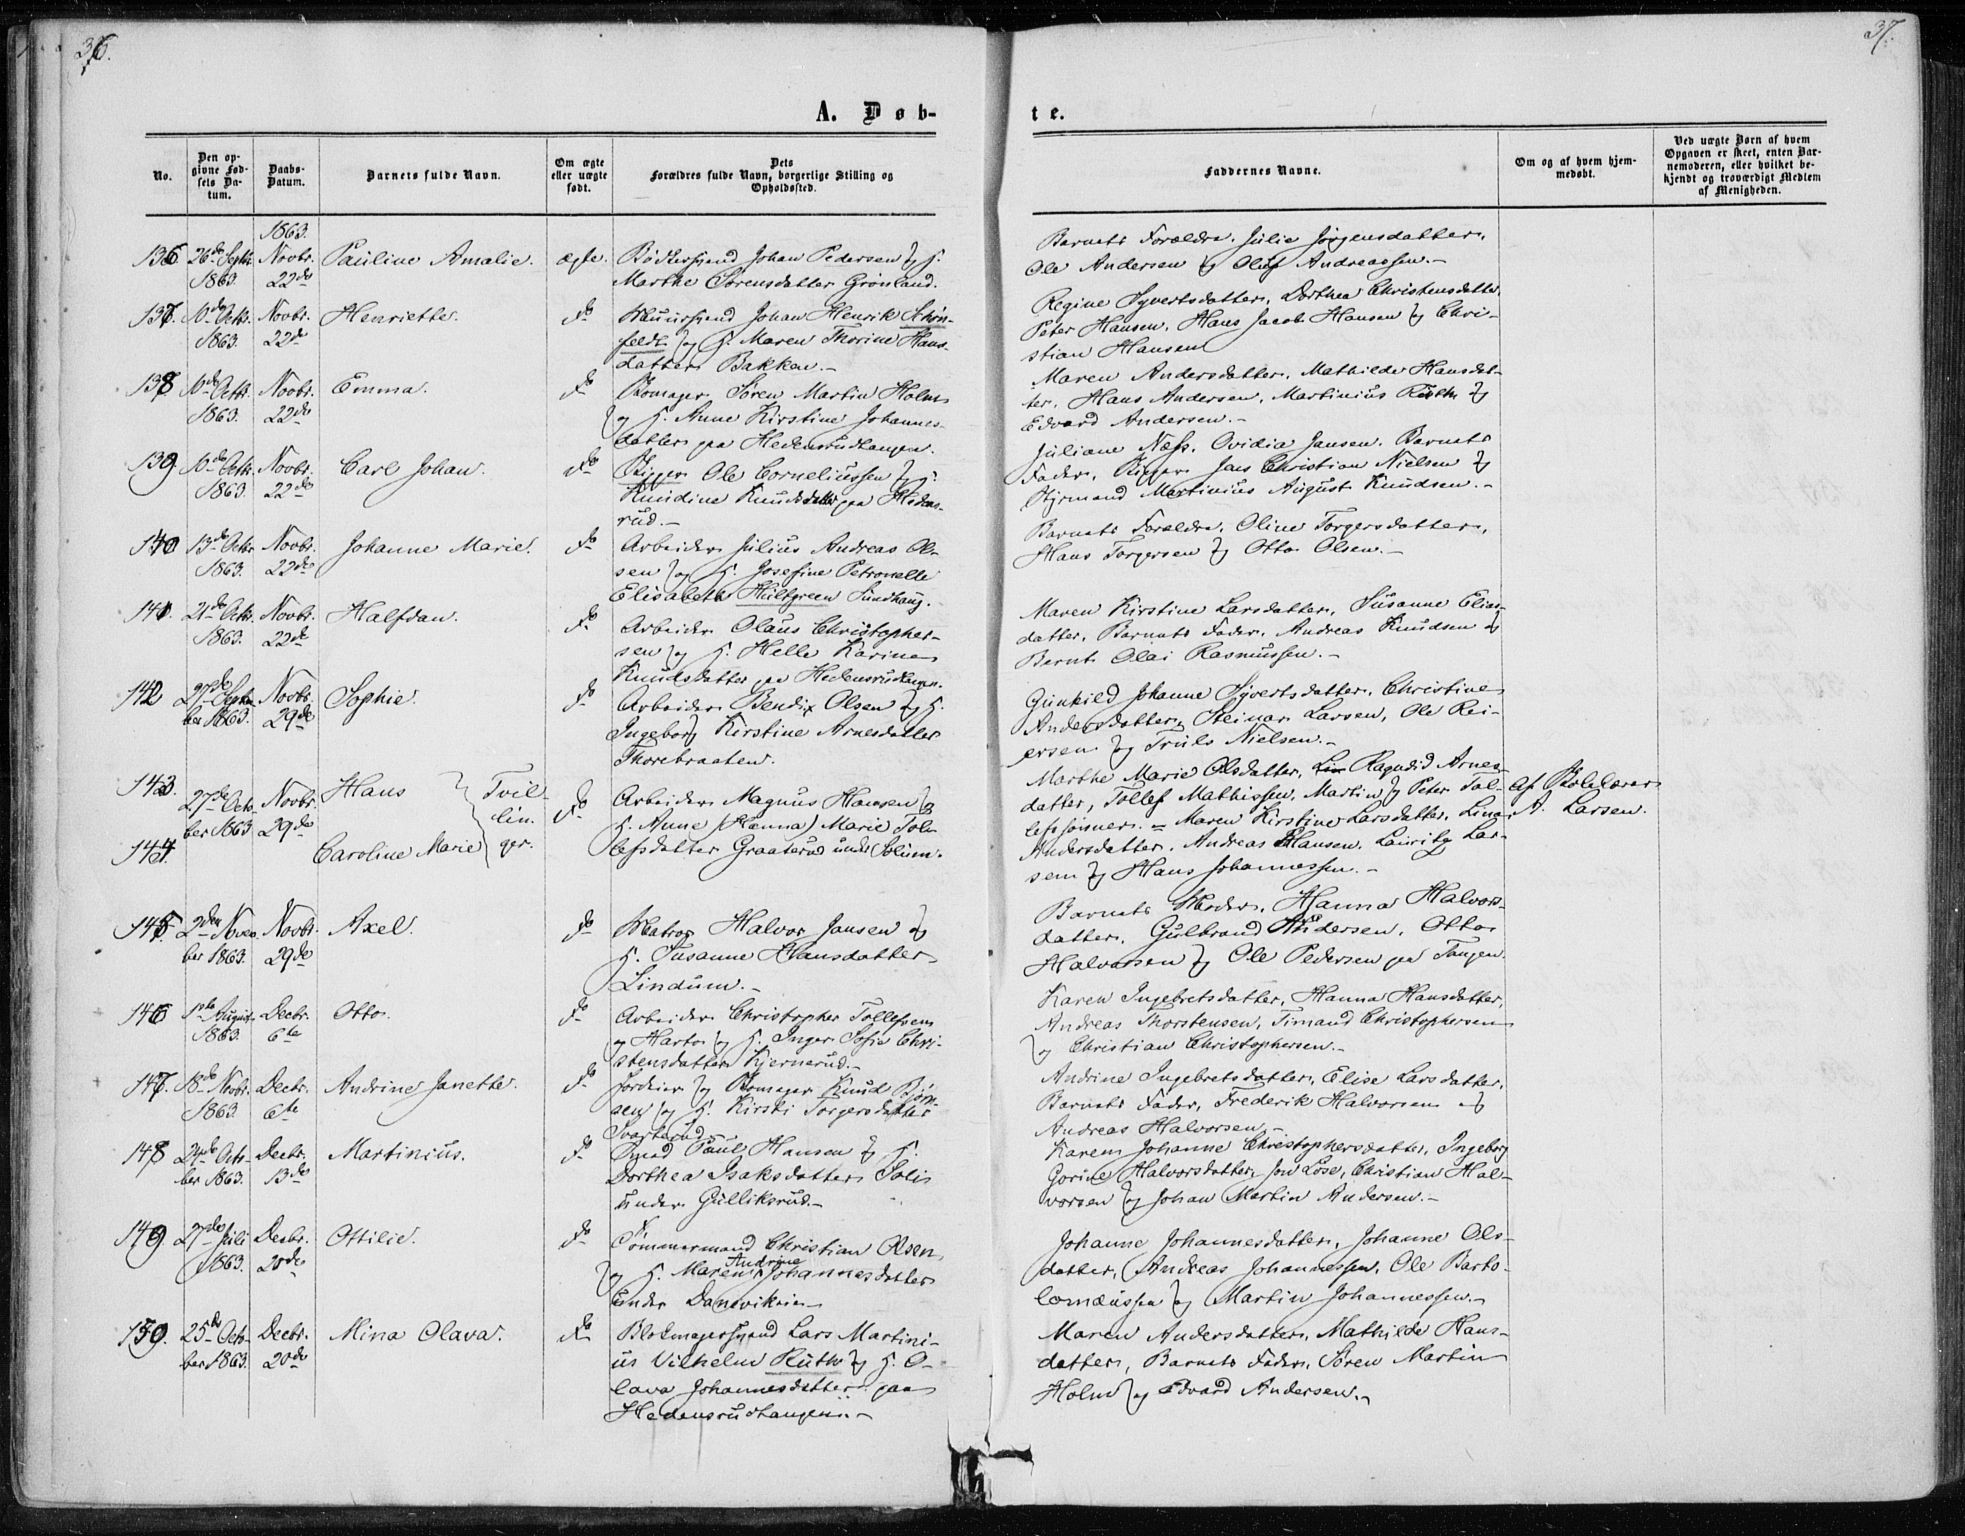 36.
37.
A. Døb-
te.
No.
Den op-
givne Fød-
sels Da-
tum.
Daabs-
Datum.
Barnets fulde Navn.
Om ægte
eller uægte
født.
Dets
Forældres fulde Navn, borgerlige Stilling og
Opholdssted.
Faddernes Navne.
Om og af hvem hjem-
medøbt.
Ved uægte Børn af hvem
Opgaven er skeet, enten Bar-
nemoderen, eller hvilket be-
kjendt og troværdigt Medlem
af Menigheden.
136 26de Septr. 1863. 1863. Novbr. 22de Pauline Amalie. ægte.
Bødkersvend Johan Pedersen og H.
Marthe Sørensdatter Grønland.
Barnets Forældre, Julie Jørgensdatter,
Ole Andersen og Oluf Andreassen.-
137. 10de Octr. 1863. Novbr. 22de Henriette. do
Muursvend Johan Henrik Schøn-
feldt og H. Maren Thorine Hans-
datter Bakken.-
Regine Syvertsdatter, Dorthea Christensdatter,
Peter Hansen, Hans Jacob Hansen og Chri-
stian Hansen
138 10de Octr. 1863. Novbr. 22de Emma. do
Skomager Søren Martin Holm
og H. Anne Kirstine Johannes-
datter paa Hedensrudtangen.
Maren Andersdatter, Mathilde Hansdat-
ter, Hans Andersen, Martinius Ruth og
Edvard Andersen.-
139 10de Octr. 1863. Novbr. 22de Carl Johan. do
Rigger Ole Corneliussen og H.
Knudine Knudsdatter paa Hedens-
rud.-
Juliane Næss, Ovidia Jansen, Barnets
Fader, Rigger Jens Christian Nielsen og
Styrmand Martinius August Knudsen.-
140 13de Octr. 1863. Novbr. 22de Johanne Marie. do
Arbeider Julius Andreas Ol-
sen og H. Josefine Petronelle
Elisabeth Hultgreen Sundhaug.
Barnets Forældre, Oline Torgersdatter,
Hans Torgersen og Otto Olsen.-
141. 21de Octr. 1863. Novbr. 22de Halfdan. do
Arbeider Olaus Christopher-
sen og H. Helle Karine
Knudsdatter paa Hedensrudtangen.
Maren Kirstine Larsdatter, Susanne Elias-
datter, Barnets Fader, Andreas Knudsen og
Bernt Olai Rasmussen.-
142 27de Septem-
ber 1863. Novbr. 29de Sophie. do
Arbeider Bendix Olsen og H.
Ingeborg Kirstine Arnesdatter
Thorebraaten.
Gunhild Johanne Syvertsdatter, Christine
Andersdatter, Steinar Larsen, Ole Rei-
ersen og Truls Nielsen.-
143. 27de Octo-
ber 1863 Novbr. 29de Hans Tvil-
lin-
ger. do
144. Caroline Marie
Arbeider Magnus Hansen og
H. Anne (Hanna) Marie Tol-
lefsdatter Graaterud under Solum.
Marthe Marie Olsdatter, Ragndid Arnes-
datter, Tollef Mathissen, Martin og Peter Tol-
lefssønner. = Maren Kirstine Larsdatter, Lina
Andersdatter, Andreas Hansen, Lauritz Lar-
sen og Hans Johannessen.-
Af Skolelærer
A. Larsen.
145 2den Novem-
ber 1863. Novbr. 29de Axel. do
Matros Halvor Jansen og
H. Susanne Hansdatter
Lindum.-
Barnets Moder, Hanna Halvors-
datter, Gulbrand Andersen, Otto
Halvorsen og Ole Pedersen paa Tangen.
146 1ste August 1863. Decbr. 6te Otto. do
Arbeider Christopher Tollefsen
Harto og H. Inger Sofie Chri-
stensdatter Kjernerud.-
Karen Ingebretsdatter, Hanna Hansdatter,
Andreas Thorstensen, Timand Christophersen
og Christian Christophersen.-
147. 18de Novbr. 1863. Decbr. 6te Andrine Janette. do
Jordeier og Skomager Knud Bjørn-
sen og H. Kirsti Torgersdatter
Svarterud.
Andrine Ingebretsdatter, Elise Larsdatter,
Barnets Fader, Frederik Halvorsen og
Andreas Halvorsen.-
148 24de Octo-
ber 1863. Decbr. 13de Martinius. do
Smed Paul Hansen og H.
Dorthea Isaksdatter Solis
under Gulliksrud.-
Karen Johanne Christophersdatter, Ingeborg
Gorine Halvorsdatter, Jon Lose, Christian Hal-
vorsen og Johan Martin Andersen.-
149 27de Juli 1863. Decbr. 20de Ottilie. do
Tømmermand Christian Olsen
og H. Maren Andrine Johannesdatter
under Dansviken
Johanne Johannesdatter, Johanne Ols-
datter, Andreas Johannessen, Ole Barto-
lomæussen og Martin Johannessen.-
150. 25de Octo-
ber 1863. Decbr. 20de Mina Olava. do
Blokmagersvend Lars Martini-
us Vilhelm Ruth og H. O-
lava Johannesdatter paa
Hedensrudtangen.-
Maren Andersdatter, Mathilde Hans-
datter, Barnets Fader, Søren Martin
Holm og Edvard Andersen.-